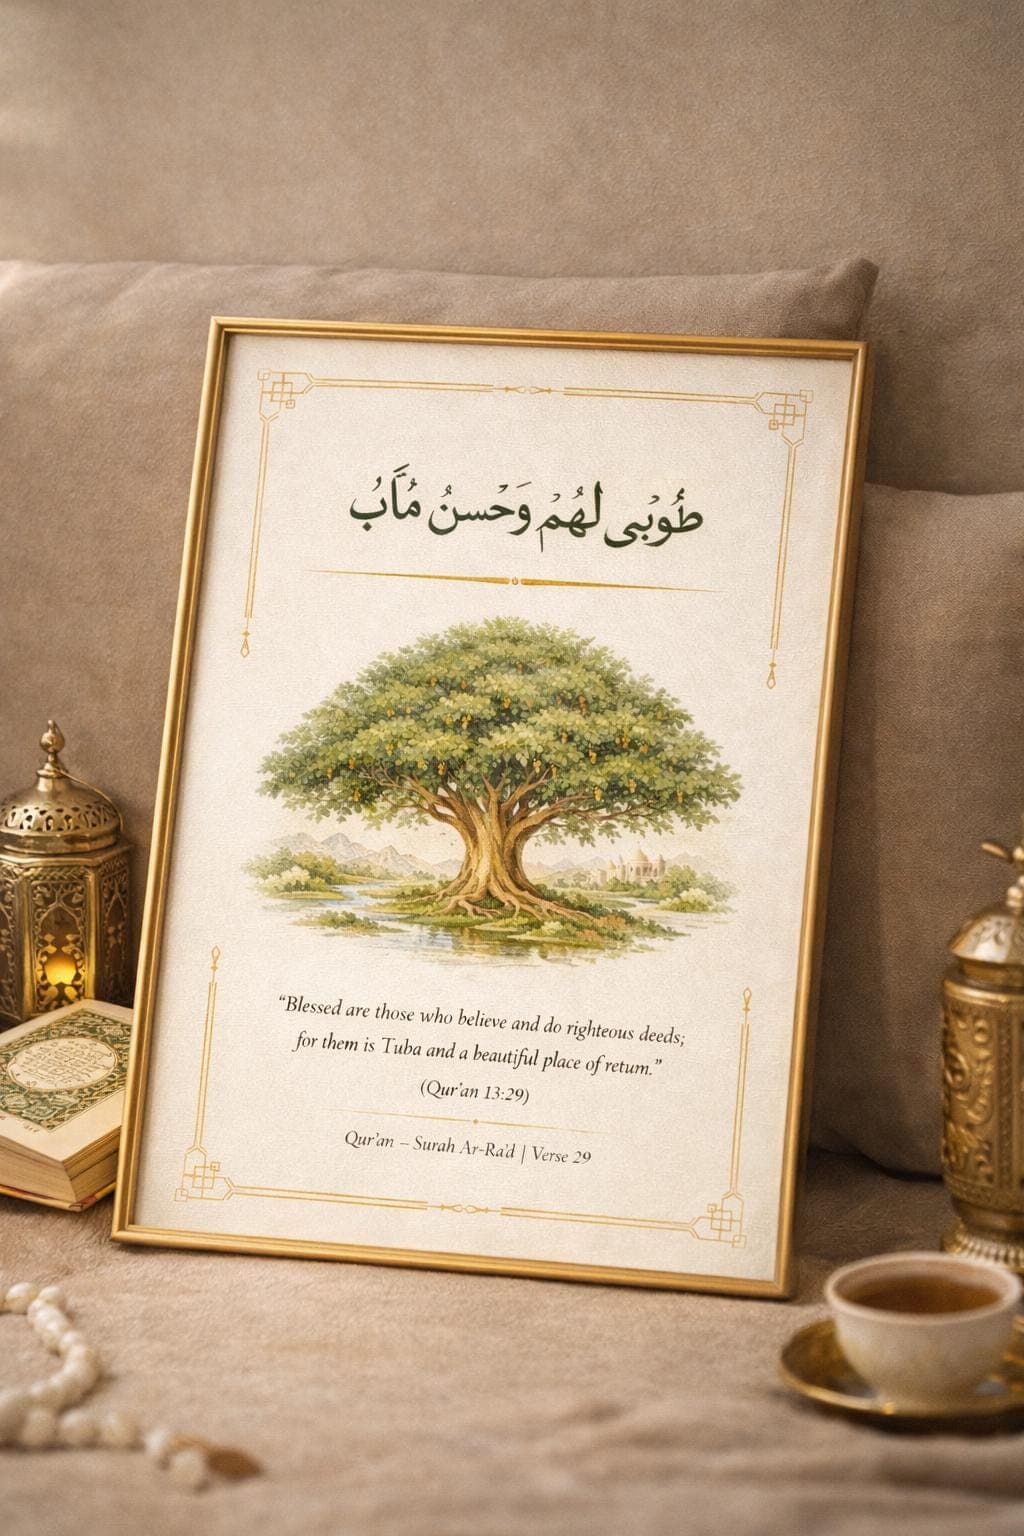 طُوْبى لهُمْ وَحْسنُ مُاَّبُ
“Blessed are those who believe and do righteous deeds;
for them is Tuba and a beautiful place of return.”
(Qur’an 13:29)
Qur’an – Surah Ar-Ra’d | Verse 29